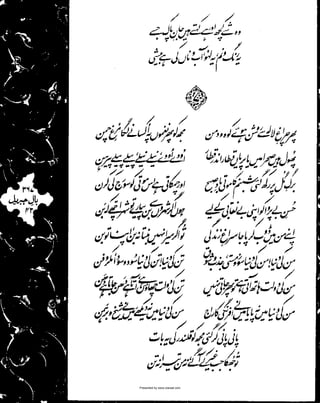 وہ شے کچھ اور ہے کہتے ہیں جانِ پاک جسے
یہ رنگ و نم، یہ لہو، آب و ناں کی ہے بیشی
پھر چراغِ لالہ سے روشن ہوئے کوہ و دمن مجھ کو پھر نغموں پہ اکسانے لگا مرغِ چمن
پھول ہیں صحرا میں یا پریاں قطار اندر قطار اودے اودے نیلے نیلے پیلے پیلے پیرہن
برگِ گل پر رکھ گئی شبنم کا موتی بادِ صبح اور چمکاتی ہے اس موتی کو سورج کی کرن
حسنِ بے پروا کو اپنی بے نقابی کے لیے ہوں اگر شہروں سے بن پیارے تو شہر اچھے کہ بن
اپنے من میں ڈوب کر پا جا سراغِ زندگی تو اگر میرا نہیں بنتا نہ بن اپنا تو بن
من کی دنیا من کی دنیا سوز و مستی جذب و شوق تن کی دنیا تن کی دنیا سود و سودا مکر و فن
من کی دولت ہاتھ آتی ہے تو پھر جاتی نہیں تن کی دولت چھاؤں ہے آتا ہے دھن جاتا ہے دھن
من کی دنیا میں نہ پایا میں نے افرنگی کا راج من کی دنیا میں نہ دیکھے میں نے شیخ و برہمن
پانی پانی کر گئی مجھ کو قلندر کی یہ بات
تو جھکا جب غیر کے آگے نہ من تیرا نہ تن
بالِ جبریل